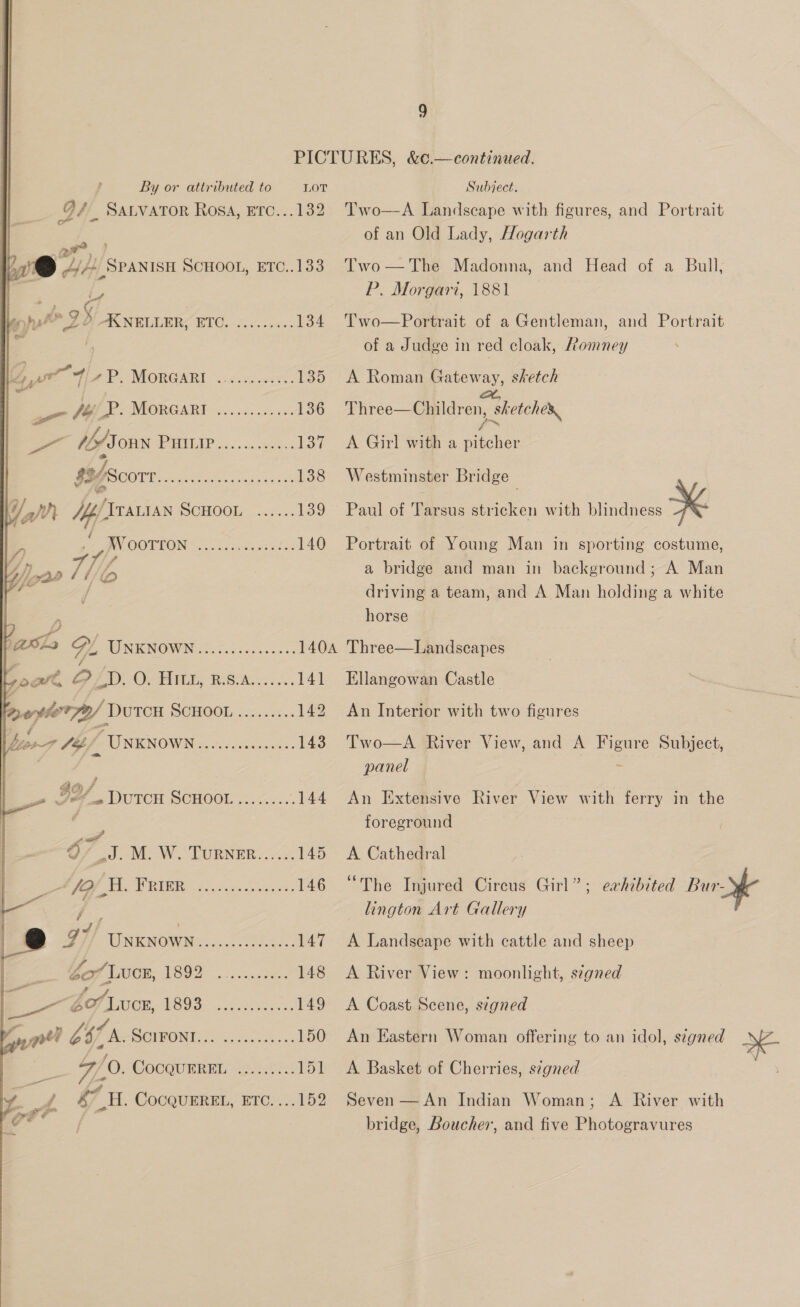 9
PICTURES, &c.—continued.
By or attributed to LOT Subject.
SALVATOR ROSA, ETC...132 Two—A Landscape with figures, and Portrait
of an Old Lady, Hogarth
SPANISH SCHOOL, ETC..133 Two—The Madonna, and Head of a Bull,
P. Morgari, 1881
KNELLER, ETC. ..........134 Two—Portrait of a Gentleman, and Portrait
of a Judge in red cloak, Romney
P. MORGARI ............135 A Roman Gateway, sketch
P. MORGARI ............136 Three—Children, sketches
JOHN PHILIP............137 A Girl with a pitcher
SCOTT........................138 Westminster Bridge
ITALIAN SCHOOL ......139 Paul of Tarsus stricken with blindness
WOOTTON ................140 Portrait of Young Man in sporting costume,
a bridge and man in background; A Man
driving a team, and A Man holding a white
horse
UNKNOWN...............140A Three—Landscapes
D. O. HILL, R.S.A.......141 Ellangowan Castle
DUTCH SCHOOL.........142 An Interior with two figures
UNKNOWN...............143 Two—A River View, and A Figure Subject,
panel
DUTCH SCHOOL.........144 An Extensive River View with ferry in the
foreground
J. M. W. TURNER......145 A Cathedral
H. FRIER ................146 “The Injured Circus Girl”; exhibited Bur-
lington Art Gallery
UNKNOWN...............147 A Landscape with cattle and sheep
LUCE, 1892 ............148 A River View: moonlight, signed
LUCE, 1893 ............149 A Coast Scene, signed
A. SCIFONI... ............150 An Eastern Woman offering to an idol, signed
O. COCQUEREL .........151 A Basket of Cherries, signed
H. COCQUEREL, ETC....152 Seven—An Indian Woman; A River with
bridge, Boucher, and five Photogravures